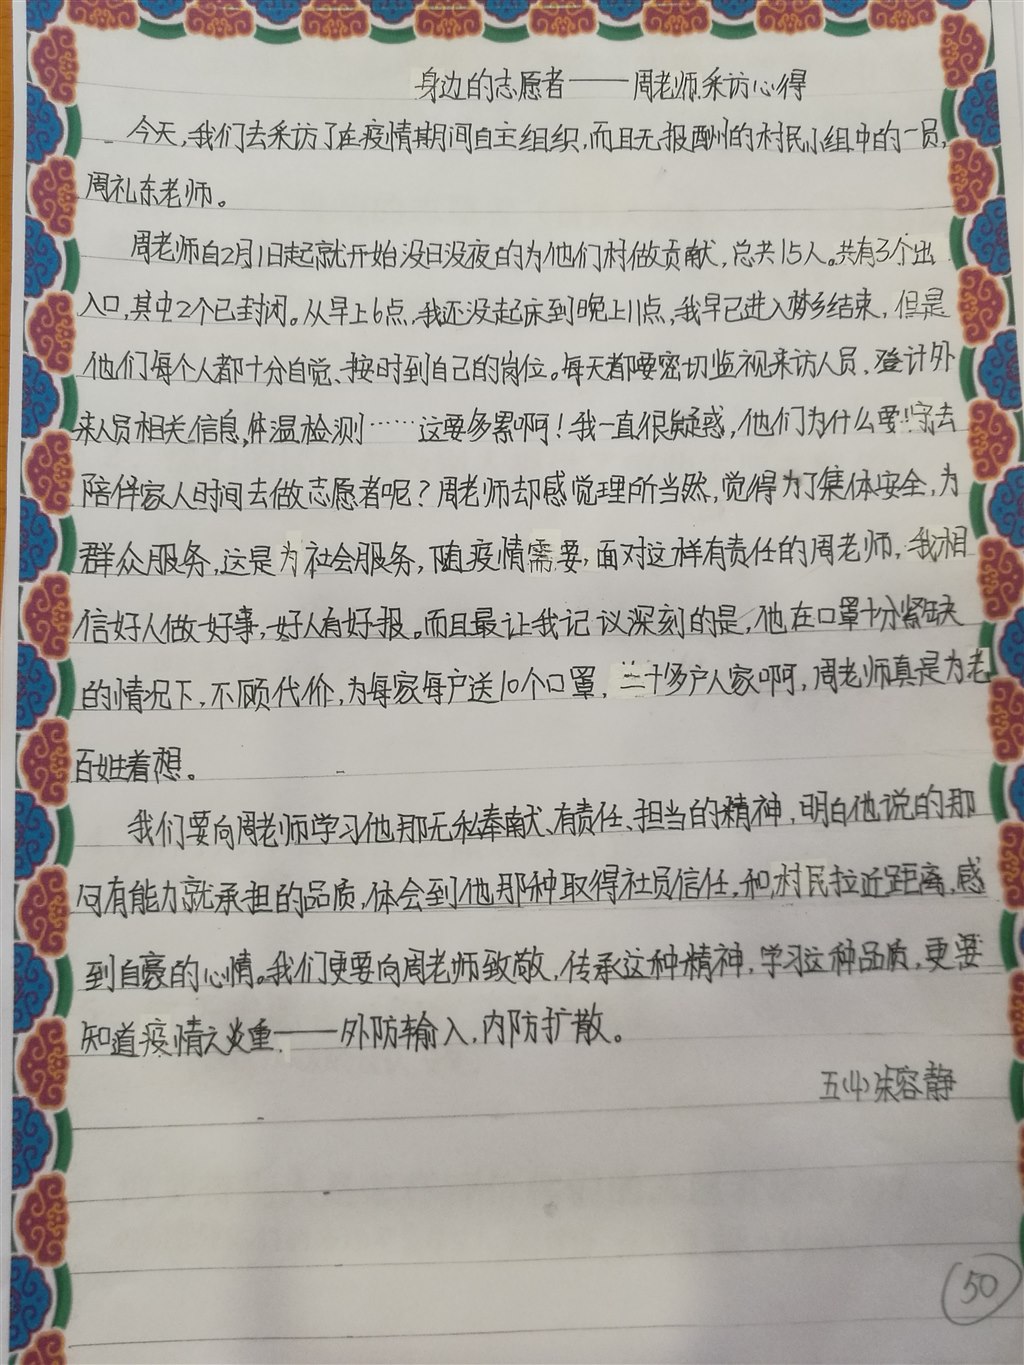 身边的志愿者——周老师采访心得
今天,我们去采访了在疫情期间自主组织,而且无报酬的村民小组中的一员,
周礼东老师。
周老师自2月1日起就开始没日没夜的为他们村做贡献,总共15人。共有3个出
入口,其中2个已封闭。从早上6点,我还没起床到晚上11点,我早已进入梦乡结束,但是
他们每个人都十分自觉、按时到自己的岗位。每天都要密切监视来访人员、登计外
来人员相关信息,体温检测……这要多累啊!我一直很疑惑,他们为什么要
陪伴家人时间去做志愿者呢?周老师却感觉理所当然,觉得为了集体安全,为
群众服务,这是为社会服务,随疫情需要,面对这样有责任的周老师,我相
信好人做好事,好人有好报。而且最让我记议深刻的是,他在口罩十分紧缺
的情况下,不顾代价,为每家每户送10个口罩,三十多户人家啊,周老师真是为老
百姓着想。
我们要向周老师学习他那无私奉献、有责任、担当的精神,明白他说的那
句有能力就承担的品质,体会到他那种取得社员信任,和村民拉近距离,感
到自豪的心情。我们更要向周老师致敬,传承这种精神,学习这种品质,更要
知道疫情之炎重——外防输入,内防扩散。
五(4)朱容静
50